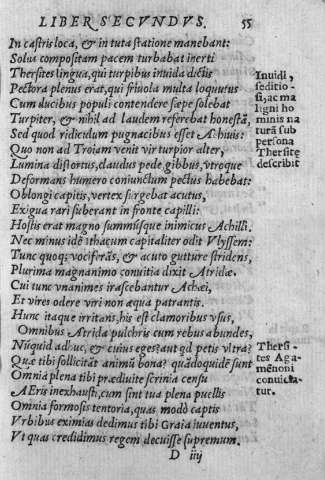 LIBER SECVNDVS. 55
In castris loca, & in tuta statione manebant:
Solus compositam pacem turbabat inerti
Thersites lingua, qui turpibus inuida dictis
Pectora plenus erat, qui friuola multa loquutus
Cum ducibus populi contendere sæpe solebat
Turpiter, & nihil ad laudem referebat honestã,
Sed quod ridiculum pugnacibus esset Achiuis:
Quo non ad Troiam venit vir turpior alter,
Lumina distortus, claudus pede, gibbus, vtroque
Deformans humero coniunctum pectus habebat:
Oblongi capitis, vertex surgebat acutus,
Exigua rari suberant in fronte capilli:
Hostis erat magno summúsque inimicus Achilli,
Nec minus ide ithacum capitaliter odit Vlyssem:
Tunc quoq; vociferãs, & acuto gutture stridens,
Plurima magnanimo conuitia dixit Atridæ.
Cui tunc vnanimes irascebantur Achæi,
Et vires odere viri non æqua patrantis.
Hunc itaque irritans, his est clamoribus vsus,
Omnibus Atrida pulchris cum rebus abundes,
Nũquid adhuc, & cuius eges? aut qd petis vltra?
Quæ tibi sollicitãt animũ bona? quãdoquidẽ sunt
Omnia plena tibi prædiuite scrinia censu
AEris inexhausti, cum sint tua plena puellis
Omnia formosis tentoria, quas modò captis
Vrbibus eximias dedimus tibi Graia iuuentus,
Vt quas credidimus regem decuisse supremum.
D iij
Inuidi,
seditio-
si, ac ma
ligni ho
minis na
turã sub
persona
Thersitę
describit
Thersi-
tes Aga-
mẽnoni
conuicia-
tur.